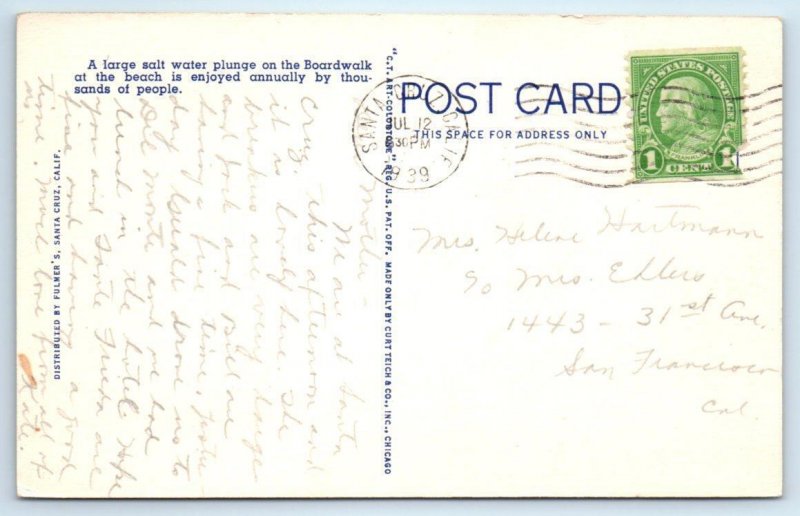 A large salt water plunge on the Boardwalk
at the beach is enjoyed annually by thou-
sands of people.
POST CARD
THIS SPACE FOR ADDRESS ONLY
SANTA CRUZ CALIF.
JUL 12
30 PM
1939
UNITED STATES POSTAGE
FRANKLIN
1 CENT 1
Mrs. Helene Hartmann
c/o Mrs. Ehlers
1443 - 31st Ave.
San Francisco
Cal.
"C.T. ART-COLORTONE" REG. U.S. PAT. OFF. MADE ONLY BY CURT TEICH & CO., INC., CHICAGO
DISTRIBUTED BY FULMER'S, SANTA CRUZ, CALIF.
Mother -
We are at Santa
Cruz this afternoon and
it is lovely here. The
are very large
and Jack and Bill are
having a fine time. Yester-
day drove us to
Del Monte and we had
lunch in the hotel. Hope
you and Tante Frieda are
fine and having a good
time. Much love from all of
Kate.